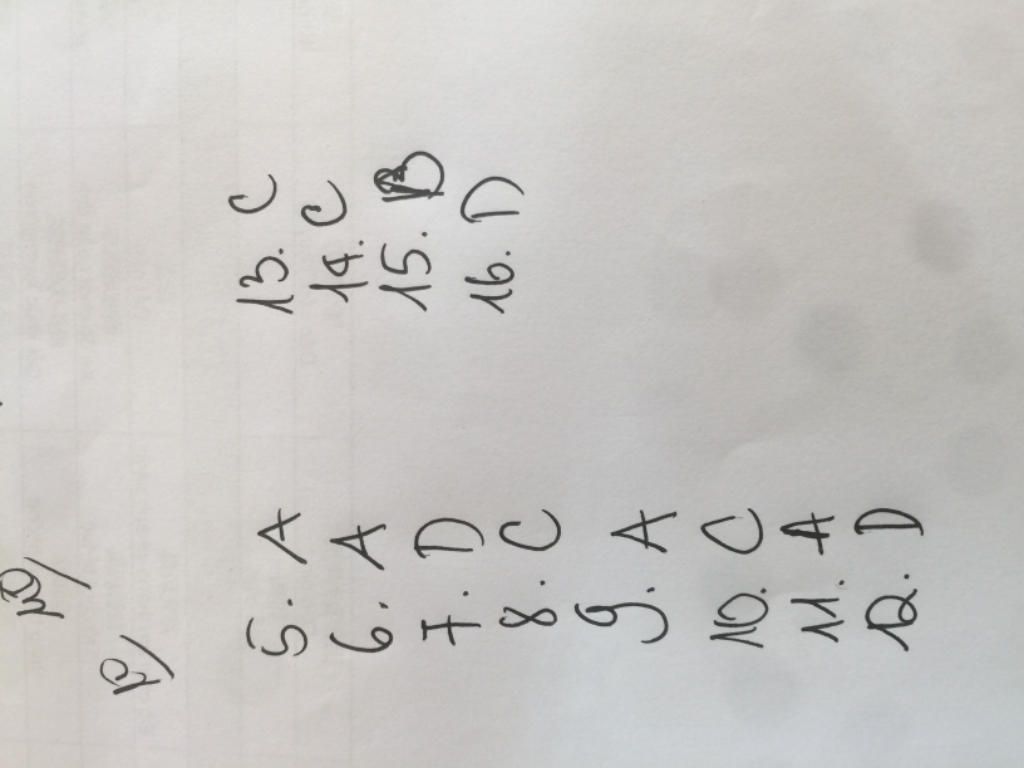 5. A
6. A
7. D
8. C
9. A
10. C
11. A
12. D
13. C
14. C
15. B
16. D